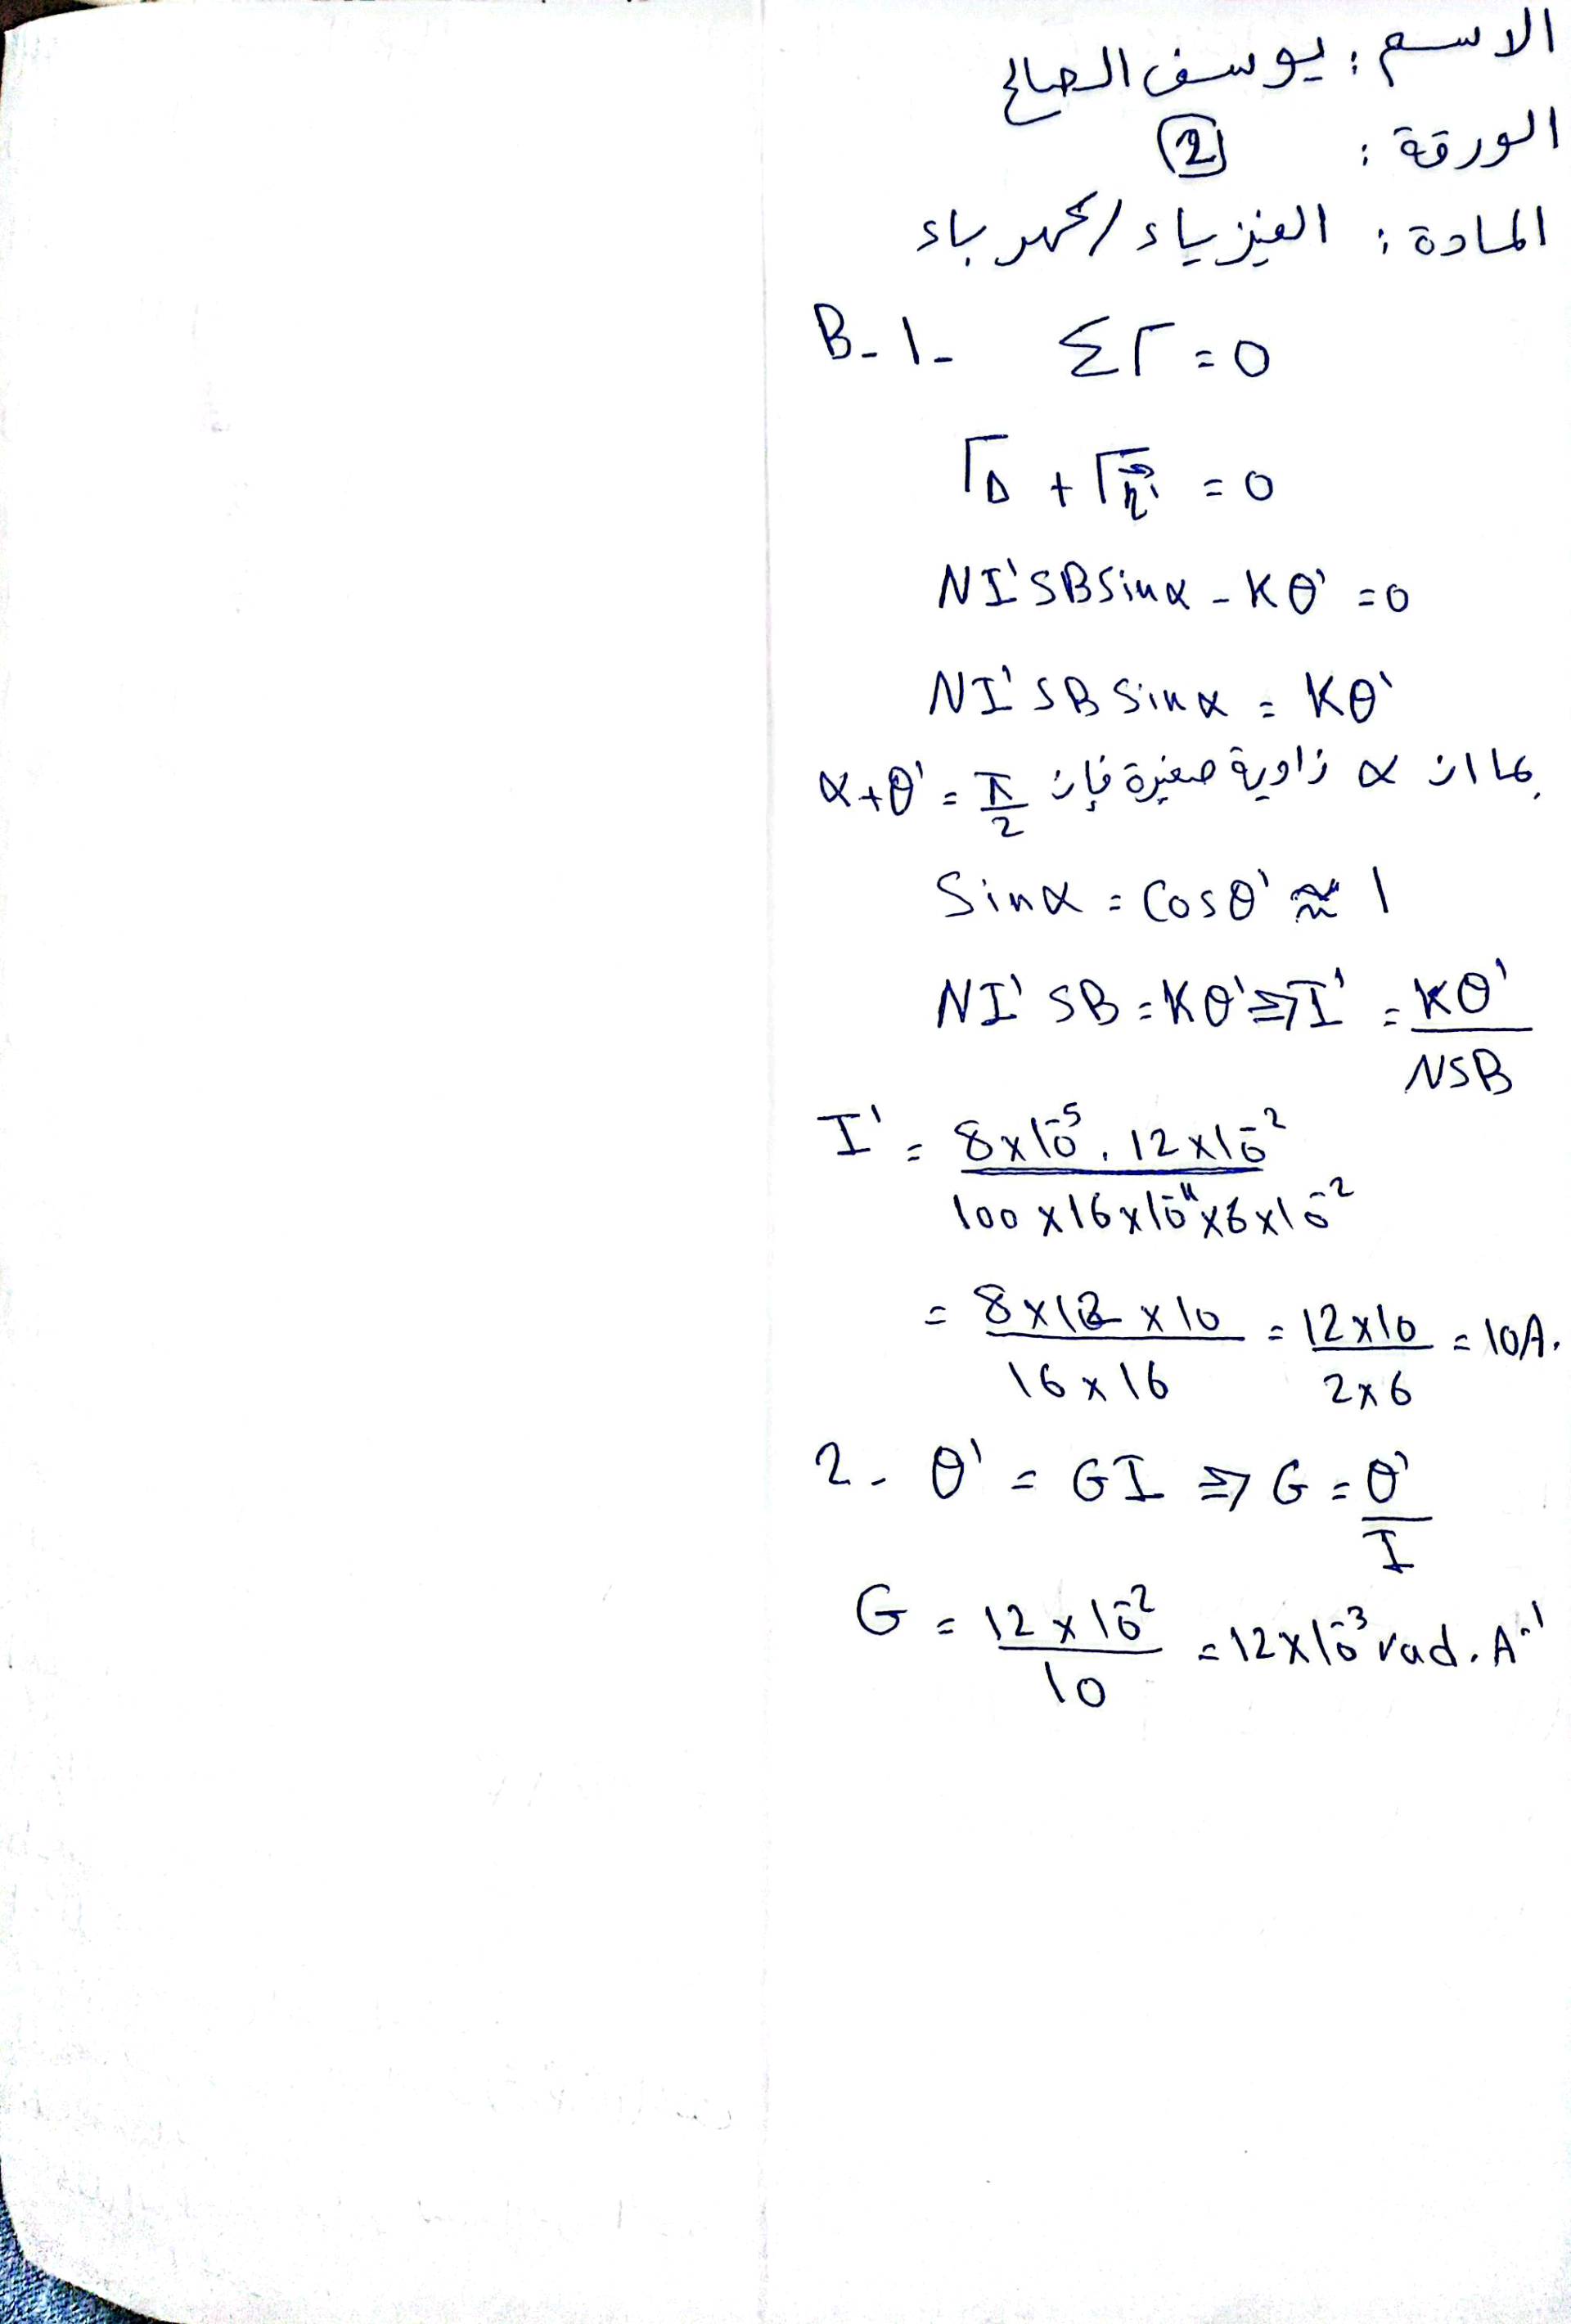 الاسم : يوسف الصالح
الورقة : 2
المادة : الفيزياء / كهرباء
B-1- ΣΓ = 0
ΓΔ + Γη' = 0
NI'SBSinα - Kθ' = 0
NI'SB Sinα = Kθ'
بما ان α زاوية صغيرة فإن α+θ' = π/2
Sinα = Cosθ' ≈ 1
NI'SB = Kθ' ⇒ I' = Kθ'/NSB
I' = 8x10⁻⁵ . 12x10⁻² / 100x16x10⁻⁴x6x10⁻²
= 8x12x10 / 16x16 = 12x10 / 2x6 = 10A.
2- θ' = GI ⇒ G = θ'/I
G = 12x10⁻² / 10 = 12x10⁻³ rad.A⁻¹